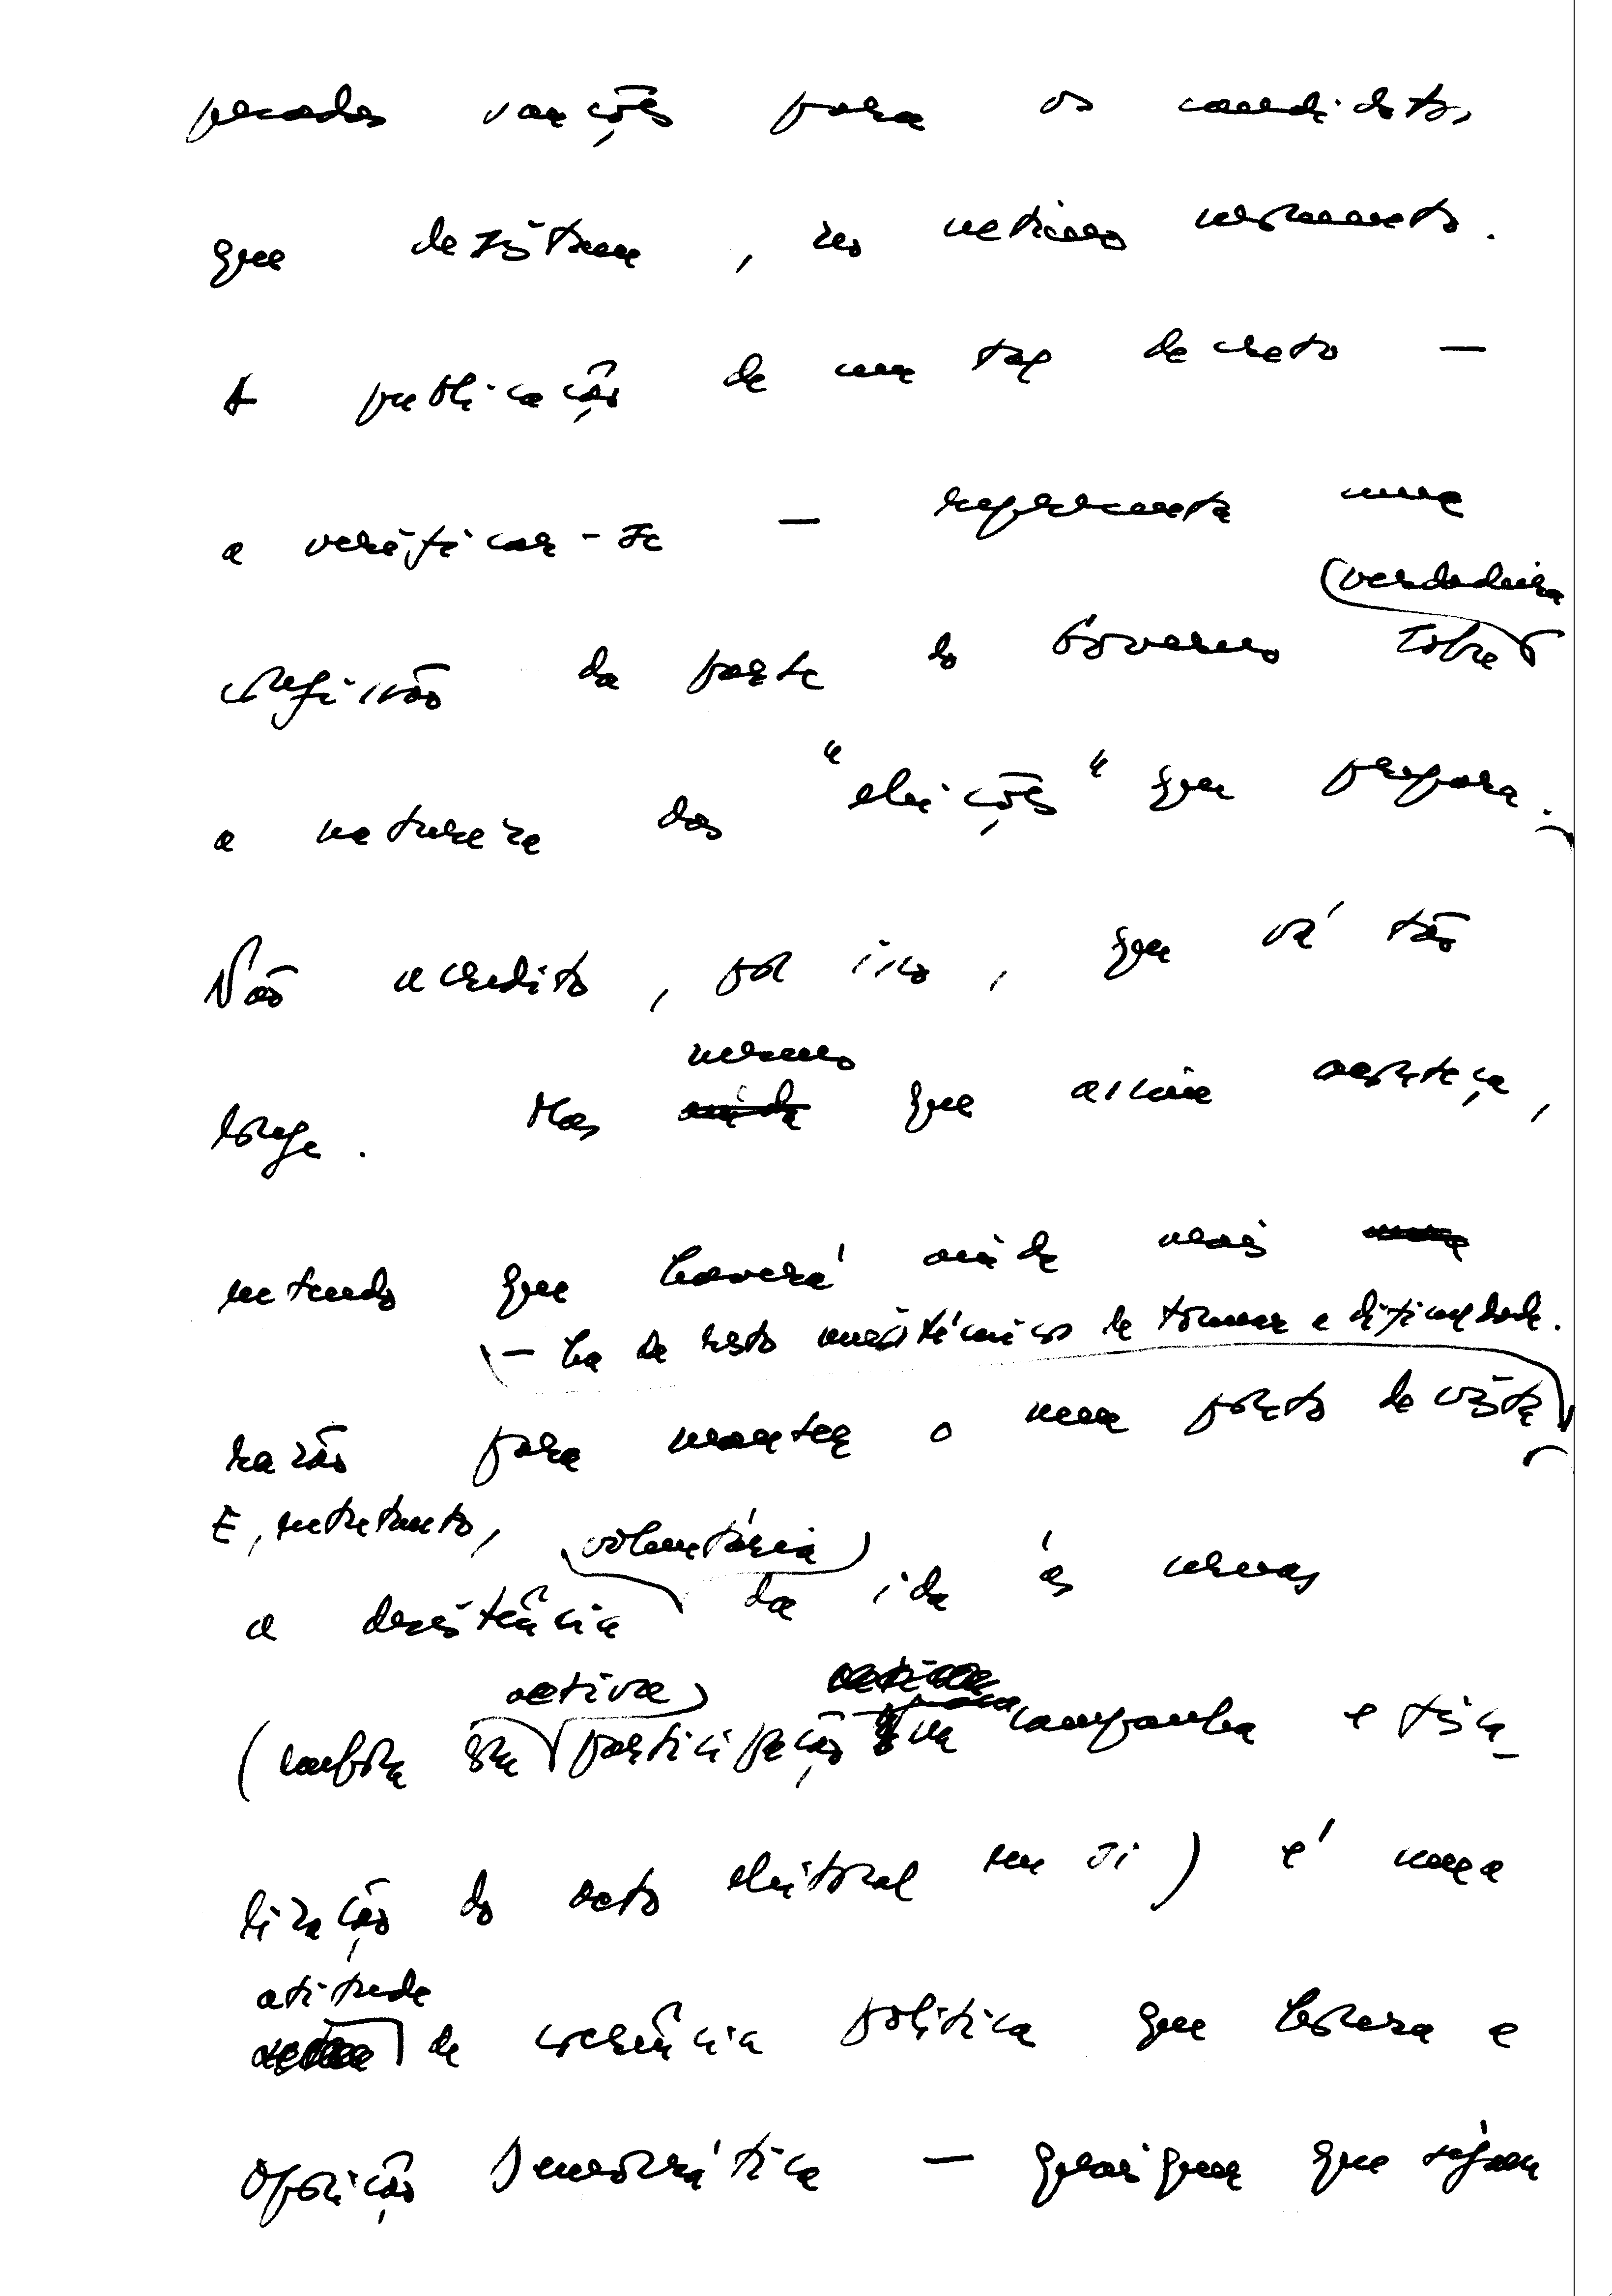 pesadas sanções para os candidatos
que desistam, no último momento.
A publicação de um tal decreto —
a verificar-se — representa uma
(verdadeira
confissão da parte do Governo sobre
a natureza das "eleições" que prepara.
Não acredito, por isso, que vá tão
longe. Mas que assim aconteça,
mesmo
entendo que haverá ainda mais
— há de resto meios técnicos de tornear a dificuldade.
razão para manter o meu ponto de vista
E, entretanto,
voluntária)
a desistência da ida às urnas
activa)
(embora com participação na campanha e fisca-
lização do acto eleitoral em si) é uma
atitude
de coerência política que honra a
Oposição Democrática — quaisquer que sejam